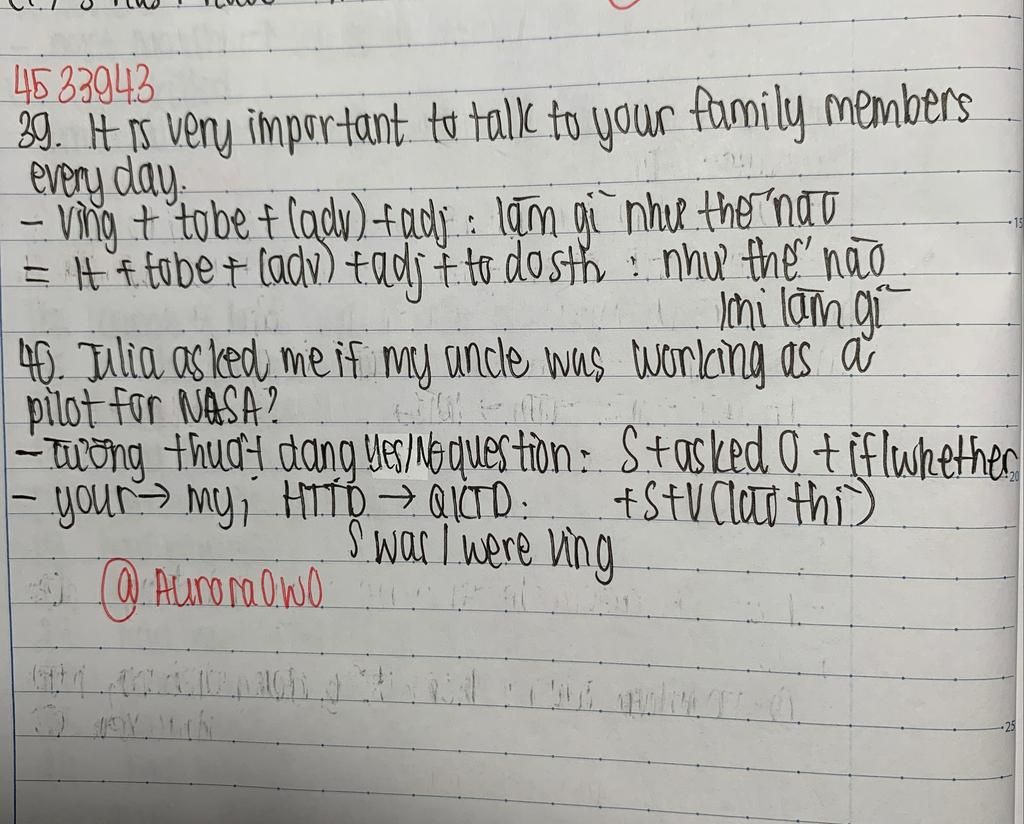 4533943
39. It is very important to talk to your family members
every day.
- Ving + tobe + (adv) + adj : làm gì như thế nào
= It + tobe + (adv) + adj + to do sth : như thế nào
khi làm gì
40. Julia asked me if my uncle was working as a
pilot for NASA?
- Tường thuật dạng Yes/No question: S + asked O + if/whether
- your → my; HTTD → QKTD. + S + V (lùi thì)
S was / were Ving
@ Aurora0w0